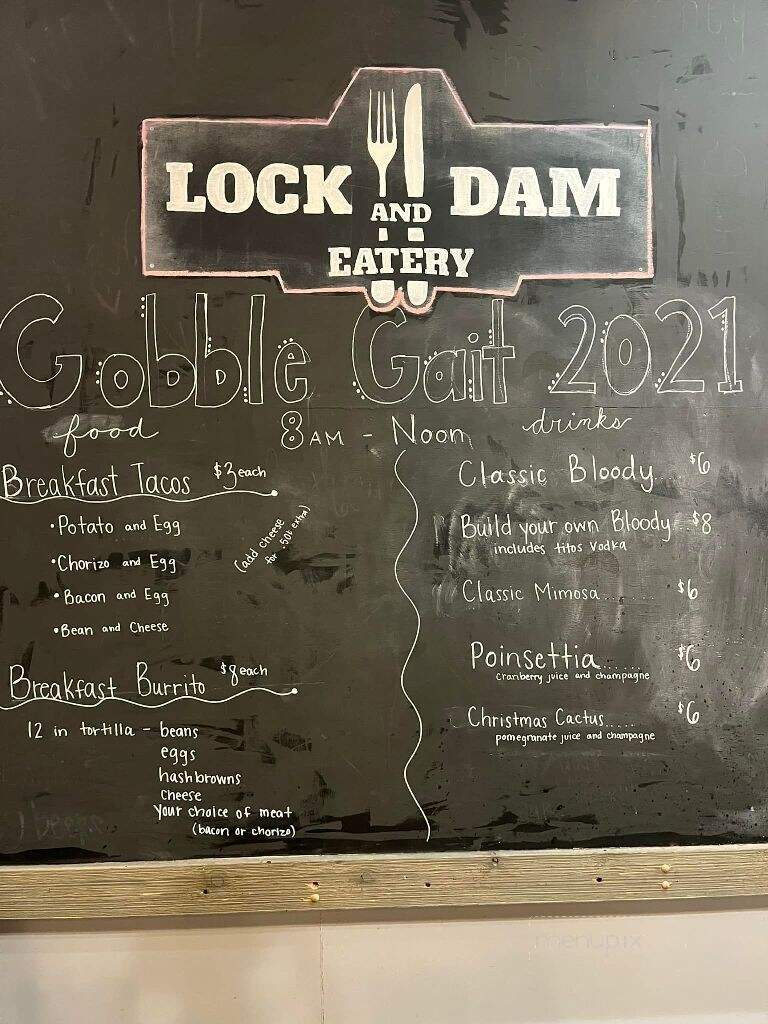 LOCK AND DAM
EATERY
Gobble Gait 2021
food
8AM - Noon
drinks
Breakfast Tacos $3 each
• Potato and Egg
• Chorizo and Egg
• Bacon and Egg
• Bean and Cheese
(add cheese
for .50¢ extra)
Breakfast Burrito $8 each
12 in tortilla - beans
eggs
hashbrowns
cheese
your choice of meat
(bacon or chorizo)
Classic Bloody..... $6
Build your own Bloody... $8
includes titos vodka
Classic Mimosa....... $6
Poinsettia...... $6
cranberry juice and champagne
Christmas Cactus..... $6
pomegranate juice and champagne
menupix